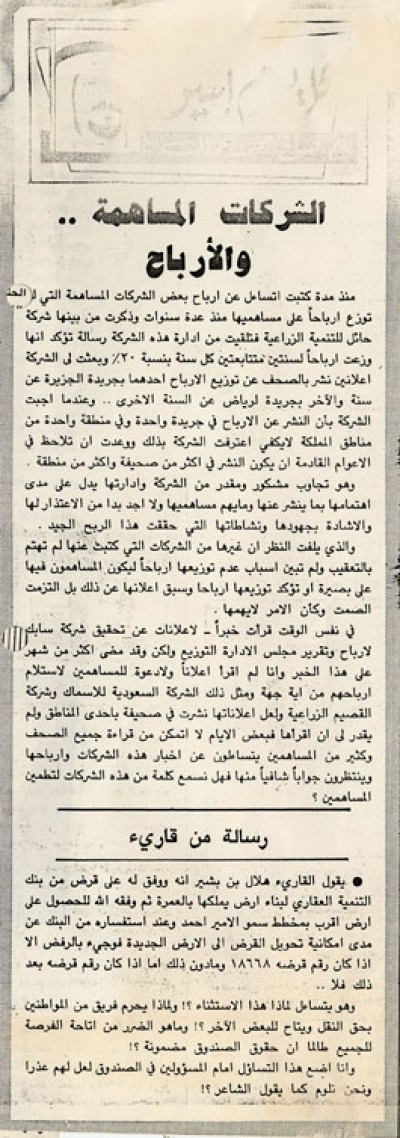 الشركات المساهمة ..
والأرباح
منذ مدة كتبت اتساءل عن ارباح بعض الشركات المساهمة التي لم
توزع ارباحاً على مساهميها منذ عدة سنوات وذكرت من بينها شركة
حائل للتنمية الزراعية فتلقيت من ادارة هذه الشركة رسالة تؤكد انها
وزعت ارباحاً لسنتين متتابعتين كل سنة بنسبة ٢٠٪ وبعثت لي الشركة
اعلانين نشر بالصحف عن توزيع الارباح احدهما بجريدة الجزيرة عن
سنة والآخر بجريدة لرياض عن السنة الاخرى .. وعندما اجبت
الشركة بأن النشر عن الارباح في جريدة واحدة وفي منطقة واحدة من
مناطق المملكة لايكفي اعترفت الشركة بذلك ووعدت ان تلاحظ في
الاعوام القادمة ان يكون النشر في اكثر من صحيفة واكثر من منطقة .
وهو تجاوب مشكور ومقدر من الشركة وادارتها يدل على مدى
اهتمامها بما ينشر عنها ومايهم مساهميها ولا اجد بدا من الاعتذار لها
والاشادة بجهودها ونشاطاتها التي حققت هذا الربح الجيد .
والذي يلفت النظر ان غيرها من الشركات التي كتبت عنها لم تهتم
بالتعقيب ولم تبين اسباب عدم توزيعها ارباحاً ليكون المساهمون فيها
على بصيرة او تؤكد توزيعها ارباحا وسبق اعلانها عن ذلك بل التزمت
الصمت وكأن الامر لايهمها .
في نفس الوقت قرأت خبراً ــ لاعلانات عن تحقيق شركة سابك
لارباح وتقرير مجلس الادارة التوزيع ولكن وقد مضى اكثر من شهر
على هذا الخبر وانا لم اقرأ اعلاناً ولادعوة للمساهمين لاستلام
ارباحهم من اية جهة ومثل ذلك الشركة السعودية للاسماك وشركة
القصيم الزراعية ولعل اعلاناتها نشرت في صحيفة باحدى المناطق ولم
يقدر لى ان اقرأها فبعض الايام لا اتمكن من قراءة جميع الصحف
وكثير من المساهمين يتساءلون عن اخبار هذه الشركات وارباحها
وينتظرون جواباً شافياً منها فهل نسمع كلمة من هذه الشركات لتطمين
المساهمين ؟
رسالة من قاريء
● يقول القاريء هلال بن بشير انه ووفق له على قرض من بنك
التنمية العقاري لبناء ارض يملكها بالعمرة ثم وفقه الله للحصول على
ارض اقرب بمخطط سمو الامير احمد وعند استفساره من البنك عن
مدى امكانية تحويل القرض الى الارض الجديدة فوجيء بالرفض الا
اذا كان رقم قرضه ١٨٦٦٨ ومادون ذلك اما اذا كان رقم قرضه بعد
ذلك فلا ..
وهو يتساءل لماذا هذا الاستثناء ؟! ولماذا يحرم فريق من المواطنين
بحق النقل ويتاح للبعض الآخر ؟! وماهو الضرر من اتاحة الفرصة
للجميع طالما ان حقوق الصندوق مضمونة ؟!
وانا اضع هذا التساؤل امام المسؤولين في الصندوق لعل لهم عذرا
ونحن نلوم كما يقول الشاعر ؟!